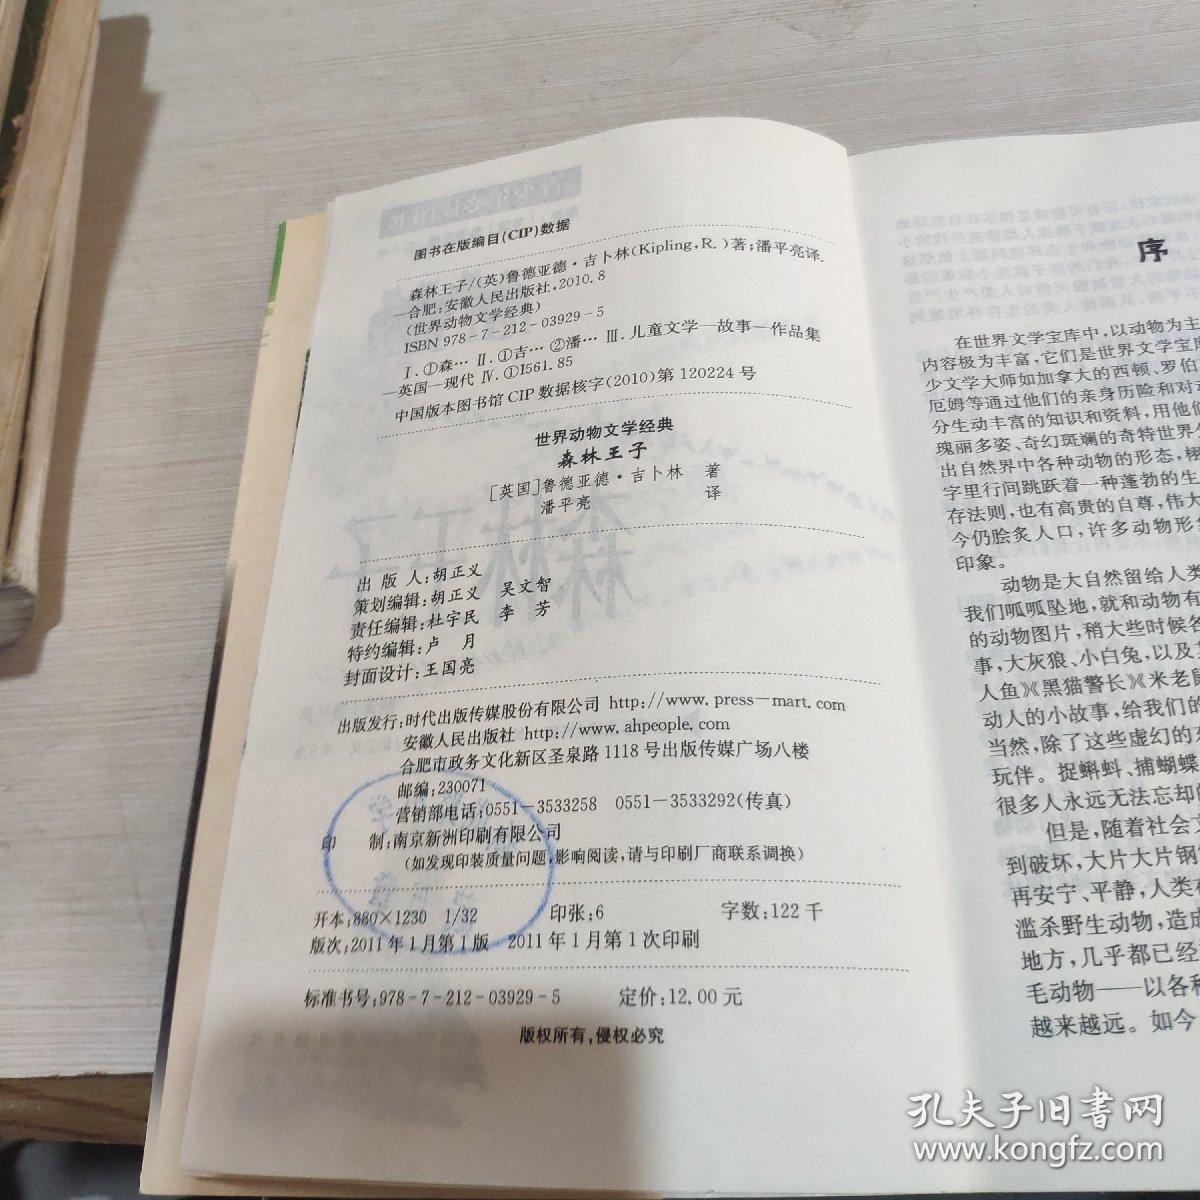 图书在版编目(CIP)数据
森林王子/(英)鲁德亚德·吉卜林(Kipling,R.)著;潘平亮译.
—合肥:安徽人民出版社,2010.8
(世界动物文学经典)
ISBN 978-7-212-03929-5
Ⅰ.①森… Ⅱ.①吉… ②潘… Ⅲ.儿童文学—故事—作品集
—英国—现代 Ⅳ.①I561.85
中国版本图书馆CIP数据核字(2010)第120224号
世界动物文学经典
森林王子
[英国]鲁德亚德·吉卜林 著
潘平亮 译
出 版 人:胡正义
策划编辑:胡正义 吴文智
责任编辑:杜宇民 李 芳
特约编辑:卢 月
封面设计:王国亮
出版发行:时代出版传媒股份有限公司 http://www.press-mart.com
安徽人民出版社 http://www.ahpeople.com
合肥市政务文化新区圣泉路1118号出版传媒广场八楼
邮编:230071
营销部电话:0551-3533258 0551-3533292(传真)
印 制:南京新洲印刷有限公司
(如发现印装质量问题,影响阅读,请与印刷厂商联系调换)
开本:880×1230 1/32 印张:6 字数:122千
版次:2011年1月第1版 2011年1月第1次印刷
标准书号:978-7-212-03929-5 定价:12.00元
版权所有,侵权必究
序
在世界文学宝库中,以动物为主
内容极为丰富,它们是世界文学宝库
少文学大师如加拿大的西顿、罗伯
厄姆等通过他们的亲身历险和对动
分生动丰富的知识和资料,用他们
瑰丽多姿、奇幻斑斓的奇特世界
出自然界中各种动物的形态,栩
字里行间跳跃着一种蓬勃的生
存法则,也有高贵的自尊,伟大
今仍脍炙人口,许多动物形
印象。
动物是大自然留给人类
我们呱呱坠地,就和动物有
的动物图片,稍大些时候各
事,大灰狼、小白兔,以及
人鱼》《黑猫警长》《米老鼠
动人的小故事,给我们的
当然,除了这些虚幻的
玩伴。捉蝌蚪、捕蝴蝶
很多人永远无法忘却的
但是,随着社会
到破坏,大片大片钢
再安宁、平静,人类
滥杀野生动物,造成
地方,几乎都已经
毛动物——以各种
越来越远。如今
孔夫子旧书网
www.kongfz.com